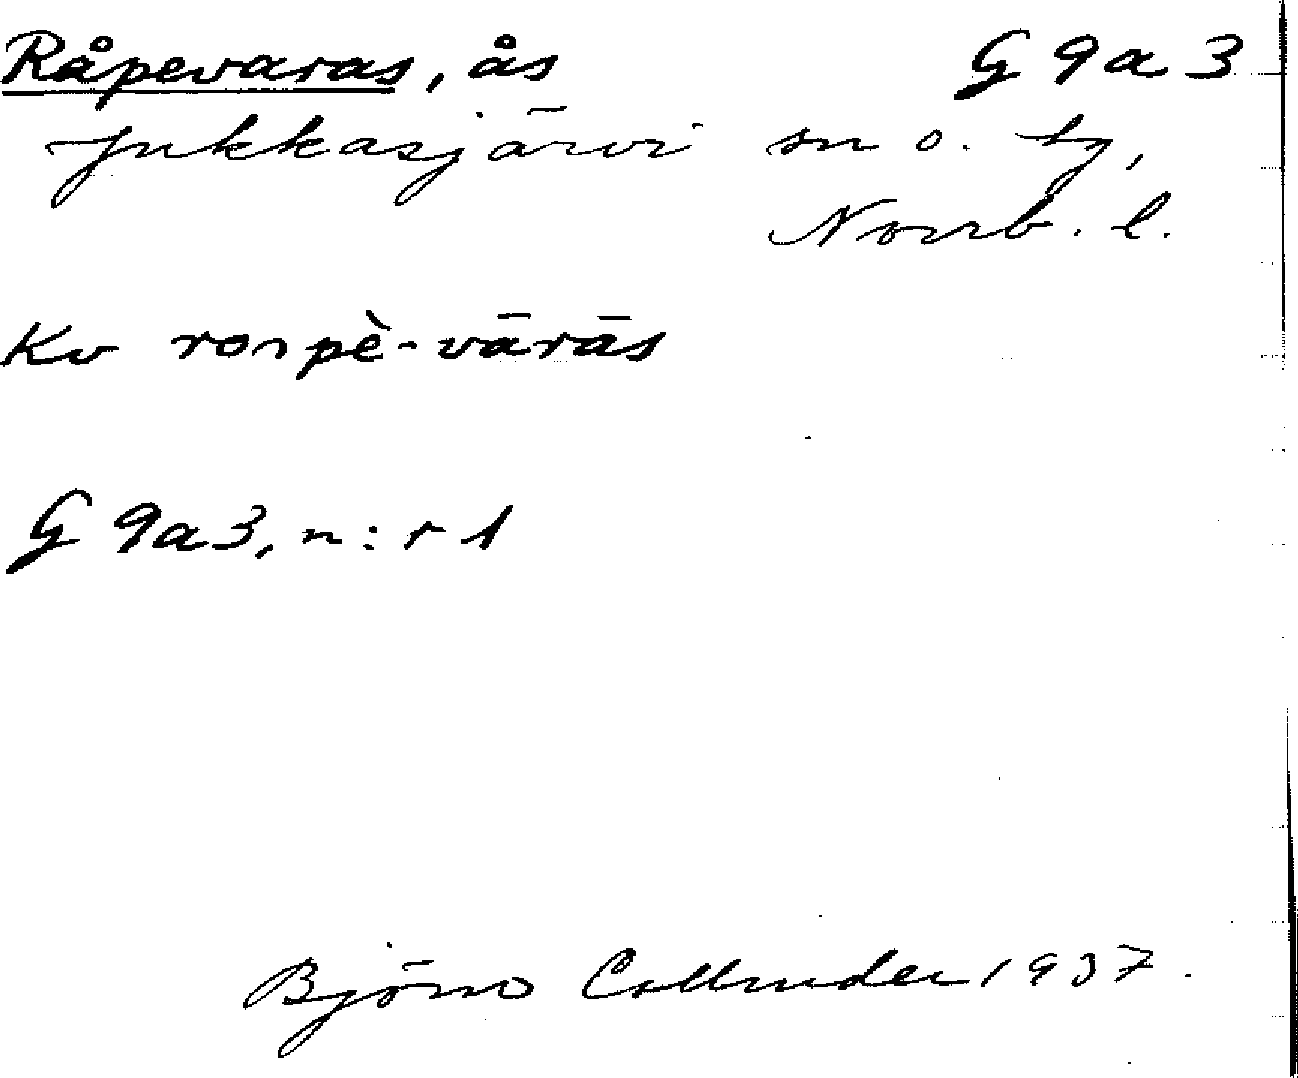 Råpevaras, ås G 9a 3
Jukkasjärvi sn o. tg,
Norrb. l.
Kv roɒpè-vārās
G 9a3, n:r 1
Björn Collinder 1937.